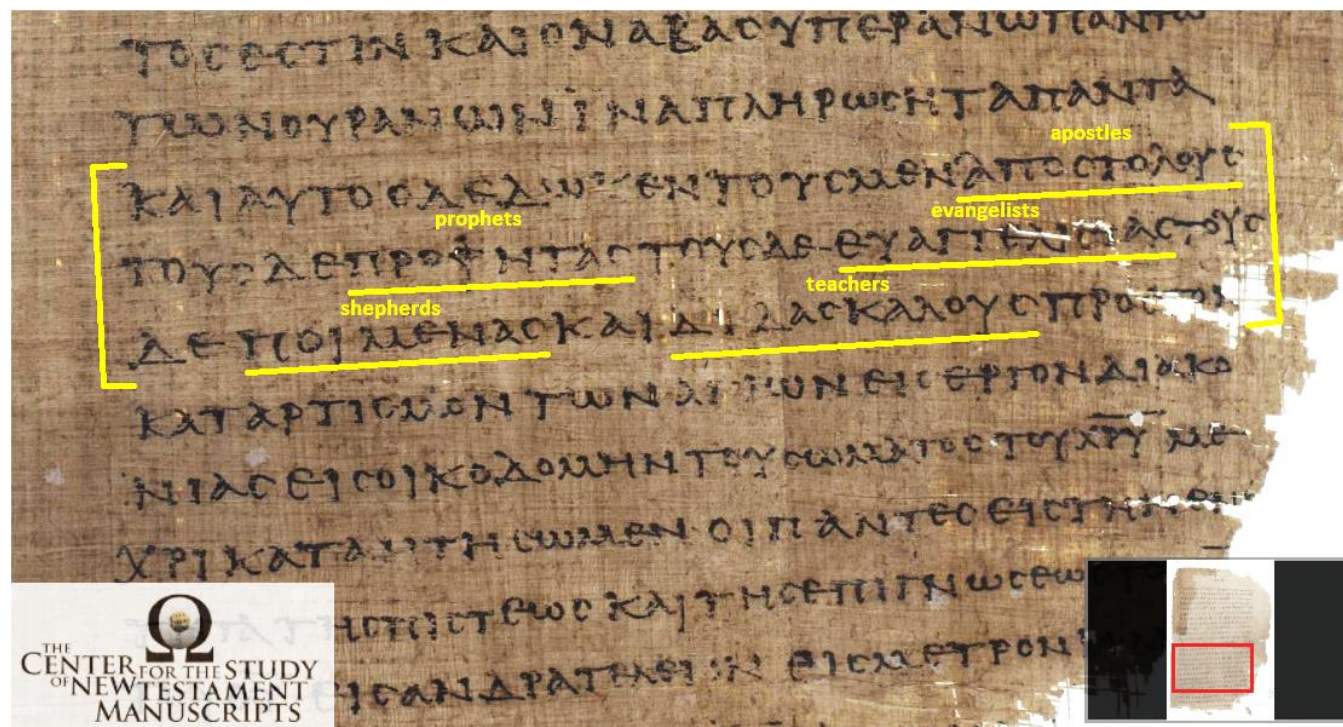 ΤΟϹΕϹΤΙΝΚΑΙΟΝΑΒΑϹΥΠΕΡΑΝΩΠΑΝΤΩ
ΤΩΝΟΥΡΑΝΩΝΙΝΑΠΛΗΡΩϹΗΤΑΠΑΝΤΑ
apostles
ΚΑΙΑΥΤΟϹΔΕΔΩΚΕΝΤΟΥϹΜΕΝΑΠΟϹΤΟΛΟΥϹ
prophets evangelists
ΤΟΥϹΔΕΠΡΟΦΗΤΑϹΤΟΥϹΔΕΕΥΑΓΓΕΛΙϹΤΑϹΤΟΥϹ
shepherds teachers
ΔΕΠΟΙΜΕΝΑϹΚΑΙΔΙΔΑϹΚΑΛΟΥϹΠΡΟϹΤΟΝ
ΚΑΤΑΡΤΙϹΜΟΝΤΩΝΑΓΙΩΝΕΙϹΕΡΓΟΝΔΙΑΚΟ
ΝΙΑϹΕΙϹΟΙΚΟΔΟΜΗΝΤΟΥϹΩΜΑΤΟϹΤΟΥΧ̅Ρ̅Υ̅ΜΕ
ΧΡΙΚΑΤΑΝΤΗϹΩΜΕΝΟΙΠΑΝΤΕϹΕΙϹΤΗΝ
ΤΗϹΠΙϹΤΕΩϹΚΑΙΤΗϹΕΠΙΓΝΩϹΕΩϹ
ΕΙϹΑΝΔΡΑΤΕΛΕΙΟΝΕΙϹΜΕΤΡΟΝ
THE
CENTER FOR THE STUDY
OF NEW TESTAMENT
MANUSCRIPTS